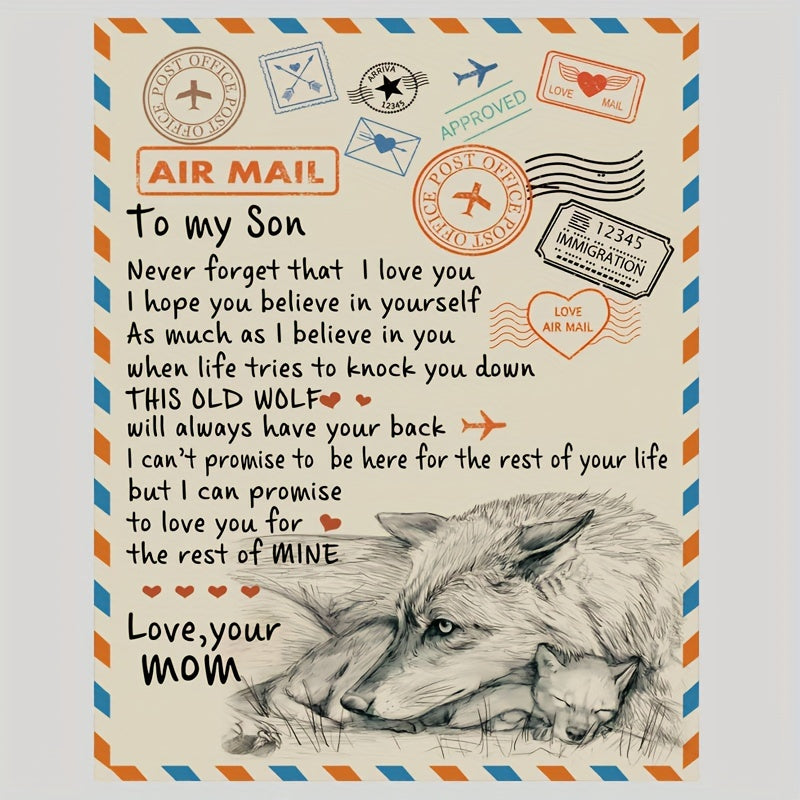 POST OFFICE POST OFFICE
ARRIVA
12345
APPROVED
LOVE MAIL
AIR MAIL
POST OFFICE POST OFFICE
12345
IMMIGRATION
LOVE
AIR MAIL
To my Son
Never forget that I love you
I hope you believe in yourself
As much as I believe in you
when life tries to knock you down
THIS OLD WOLF
will always have your back
I can't promise to be here for the rest of your life
but I can promise
to love you for
the rest of MINE
Love,your
mom